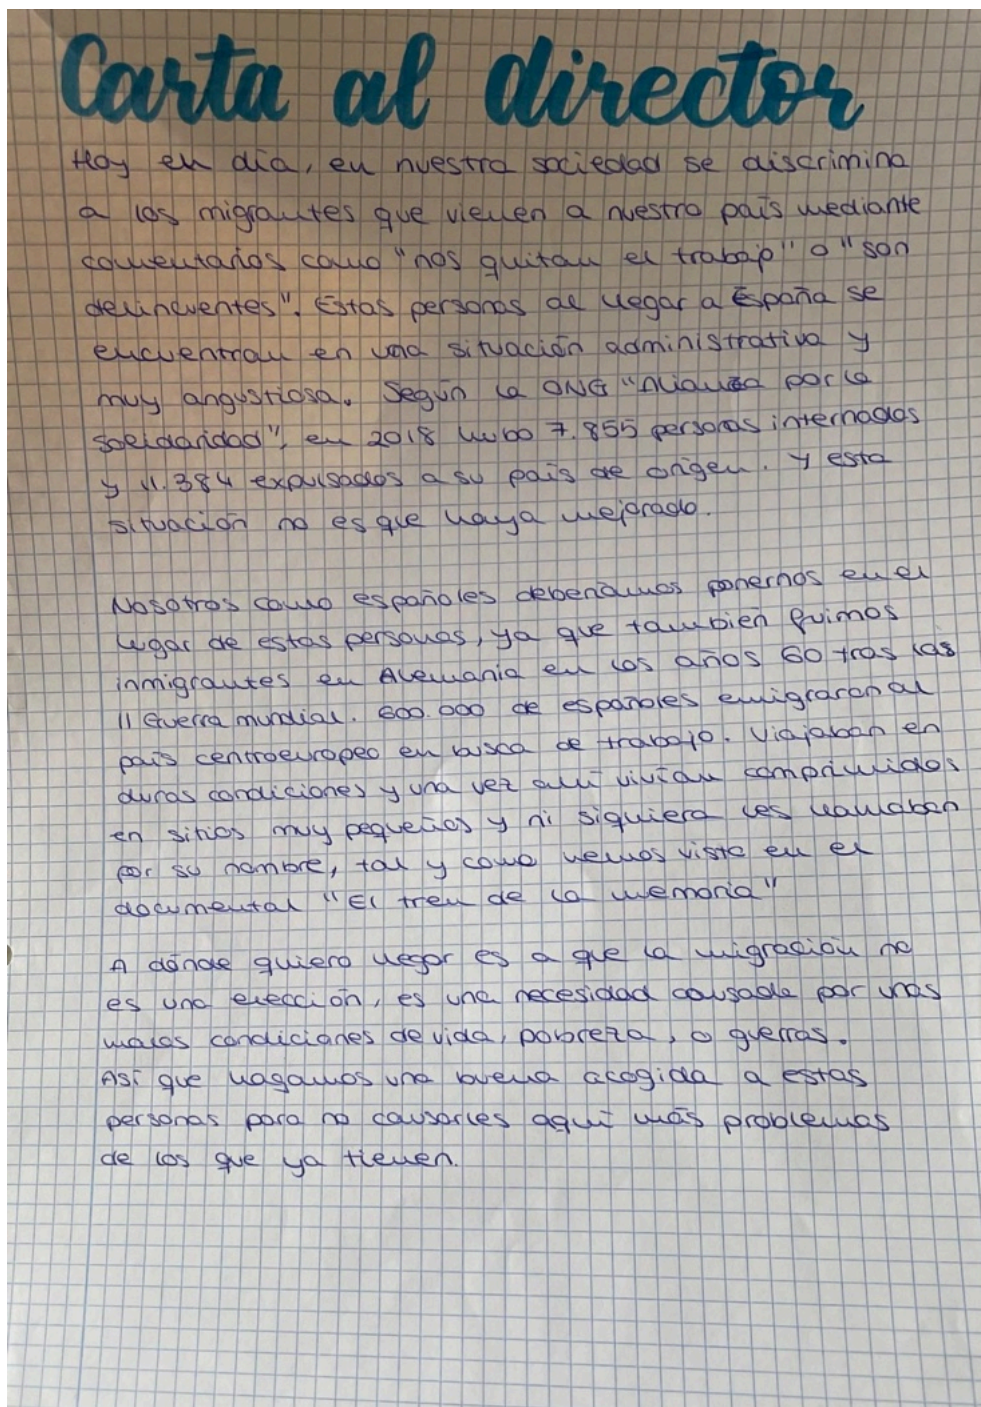 Carta al director
Hoy en día, en nuestra sociedad se discrimina
a los migrantes que vienen a nuestro país mediante
comentarios como "nos quitan el trabajo" o "son
delincuentes". Estas personas al llegar a España se
encuentran en una situación administrativa y
muy angustiosa. Según la ONG "Alianza por la
solidaridad", en 2018 hubo 7.855 personas internados
y 11.384 expulsados a su país de origen. Y esta
situación no es que haya mejorado.
Nosotros como españoles deberíamos ponernos en el
lugar de estas personas, ya que también fuimos
inmigrantes en Alemania en los años 60 tras las
II Guerra mundial. 600.000 de españoles emigraron al
país centroeuropeo en busca de trabajo. Viajaban en
duras condiciones y una vez allí vivían comprimidos
en sitios muy pequeños y ni siquiera les llamaban
por su nombre, tal y como hemos visto en el
documental "El tren de la memoria"
A dónde quiero llegar es a que la migración no
es una elección, es una necesidad causada por unas
malas condiciones de vida, pobreza, o guerras.
Así que hagamos una buena acogida a estas
personas para no causarles aquí más problemas
de los que ya tienen.